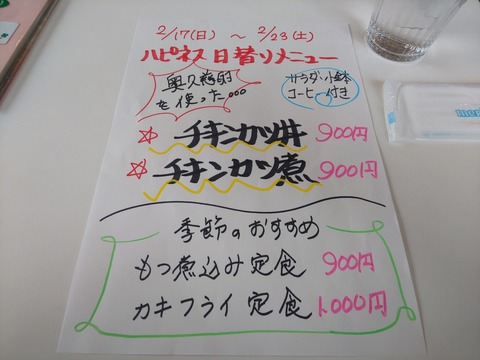 2/17(日) ～ 2/23(土)
ハピネス日替りメニュー
奥久慈卵
を使った…
サラダ、小鉢
コーヒー付き
☆ チキンカツ丼 900円
☆ チキンカツ煮 900円
季節のおすすめ
もつ煮込み定食 900円
カキフライ定食 1,000円